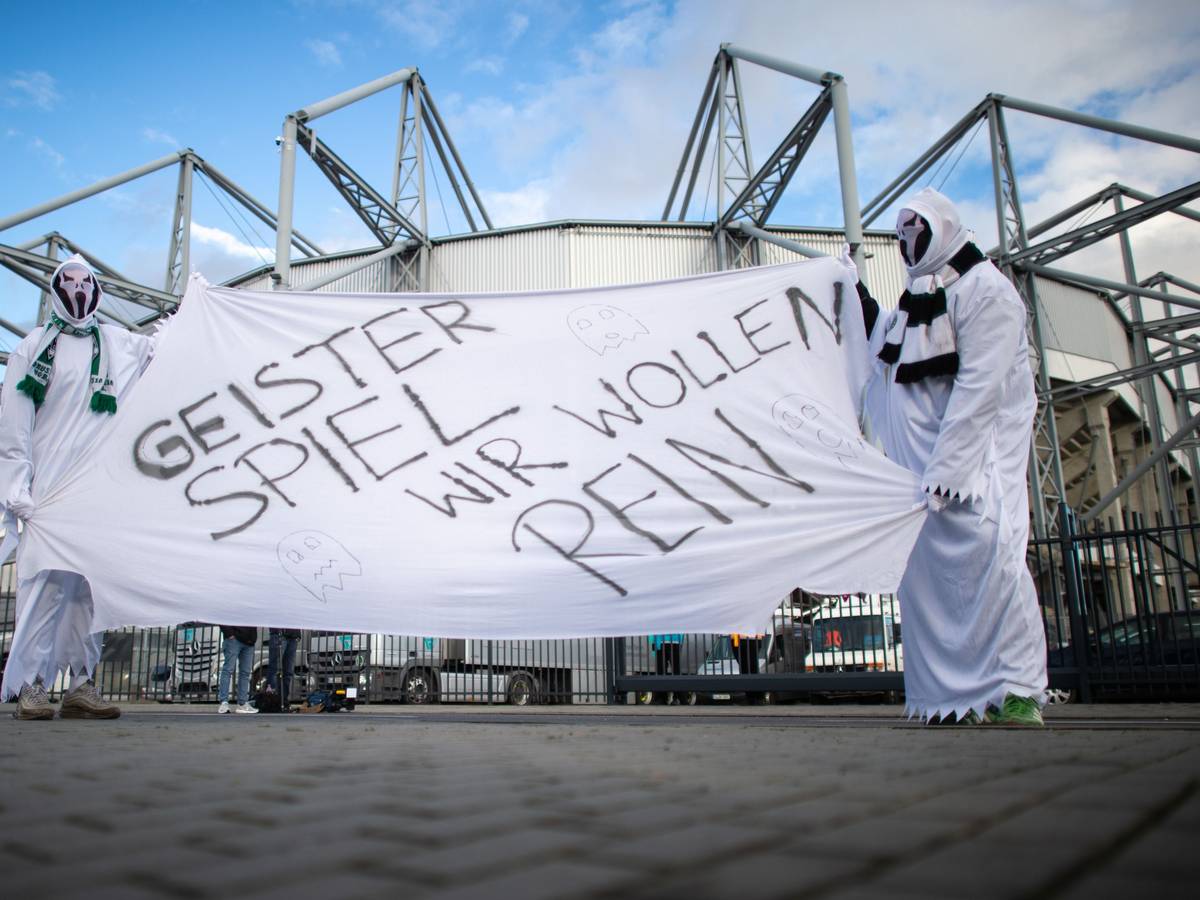 GEISTER
SPIEL
WIR WOLLEN
REIN